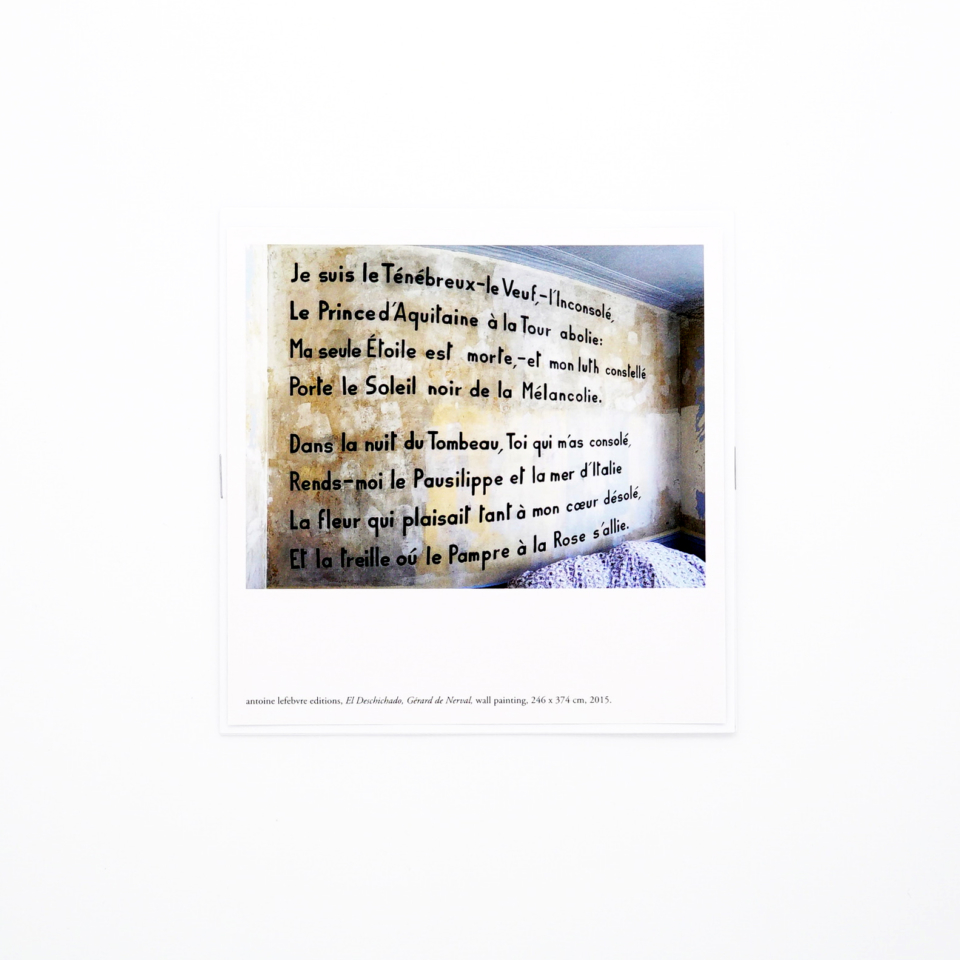 Je suis le Ténébreux-le Veuf,-l'Inconsolé,
Le Prince d'Aquitaine à la Tour abolie:
Ma seule Étoile est morte,-et mon luth constellé
Porte le Soleil noir de la Mélancolie.
Dans la nuit du Tombeau, Toi qui m'as consolé,
Rends-moi le Pausilippe et la mer d'Italie
La fleur qui plaisait tant à mon cœur désolé,
Et la treille oú le Pampre à la Rose s'allie.
antoine lefebvre editions, El Deschichado, Gérard de Nerval, wall painting, 246 x 374 cm, 2015.